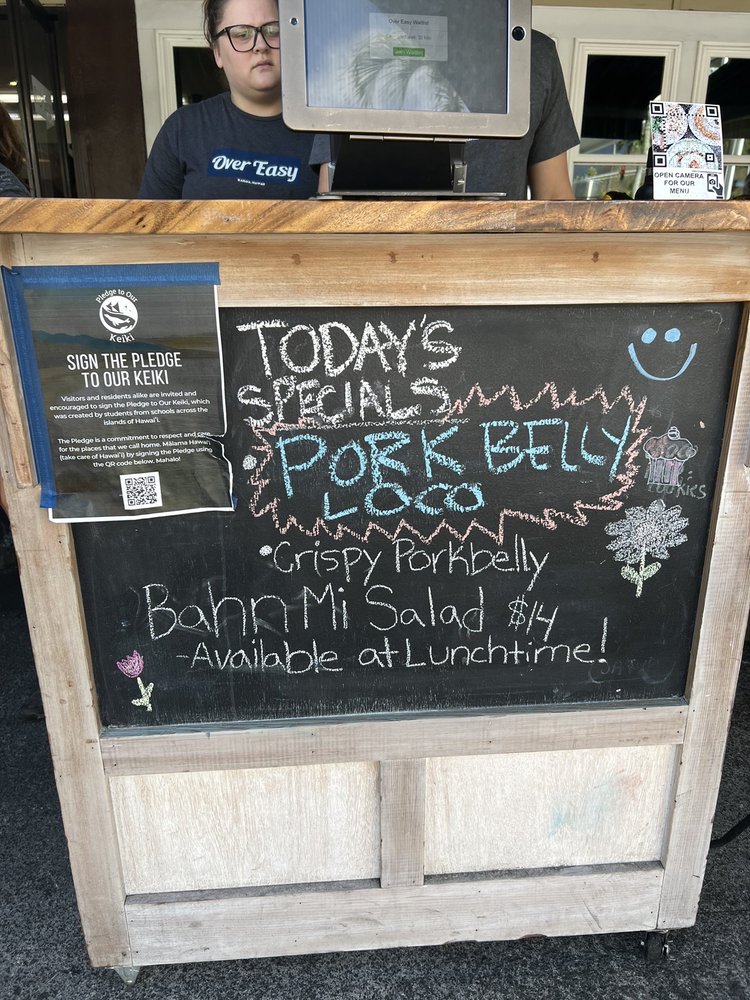 Over Easy Waitlist
Over Easy
KAILUA, HAWAII
OPEN CAMERA
FOR OUR
MENU
Pledge to Our
Keiki
SIGN THE PLEDGE
TO OUR KEIKI
Visitors and residents alike are invited and
encouraged to sign the Pledge to Our Keiki, which
was created by students from schools across the
islands of Hawai'i.
The Pledge is a commitment to respect and care
for the places that we call home. Mālama Hawai'i
(take care of Hawai'i) by signing the Pledge using
the QR code below. Mahalo!
TODAY'S
SPECIALS
PORK BELLY
LOCO
COOKIES
• Crispy Porkbelly
Bahn Mi Salad $14
- Available at Lunchtime!